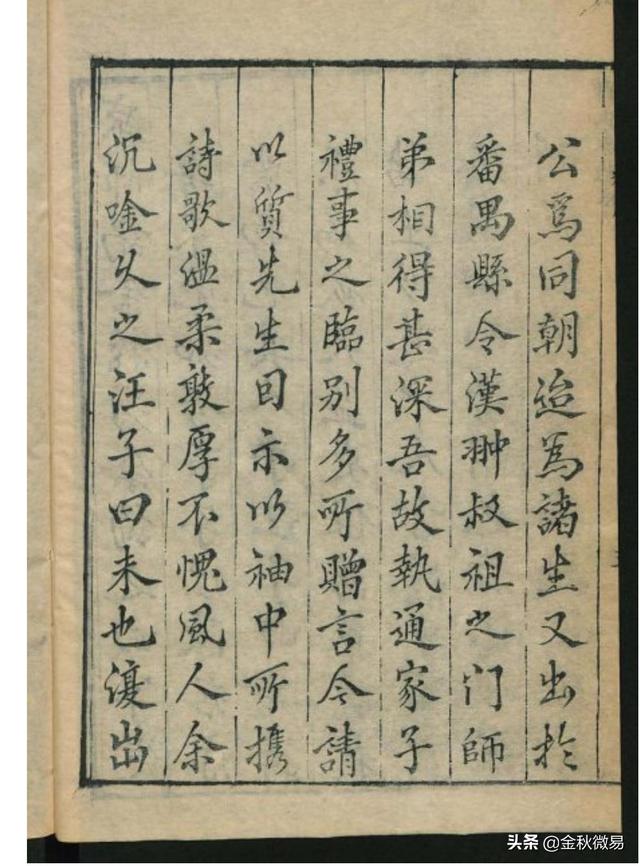 公爲同朝迨爲諸生又出於
番禺縣令漢翀叔祖之門師
弟相得甚深吾故執通家子
禮事之臨別多所贈言今請
以質先生回示以袖中所攜
詩歌溫柔敦厚不愧風人余
沉唫久之汪子曰未也復出
头条 @金秋微易